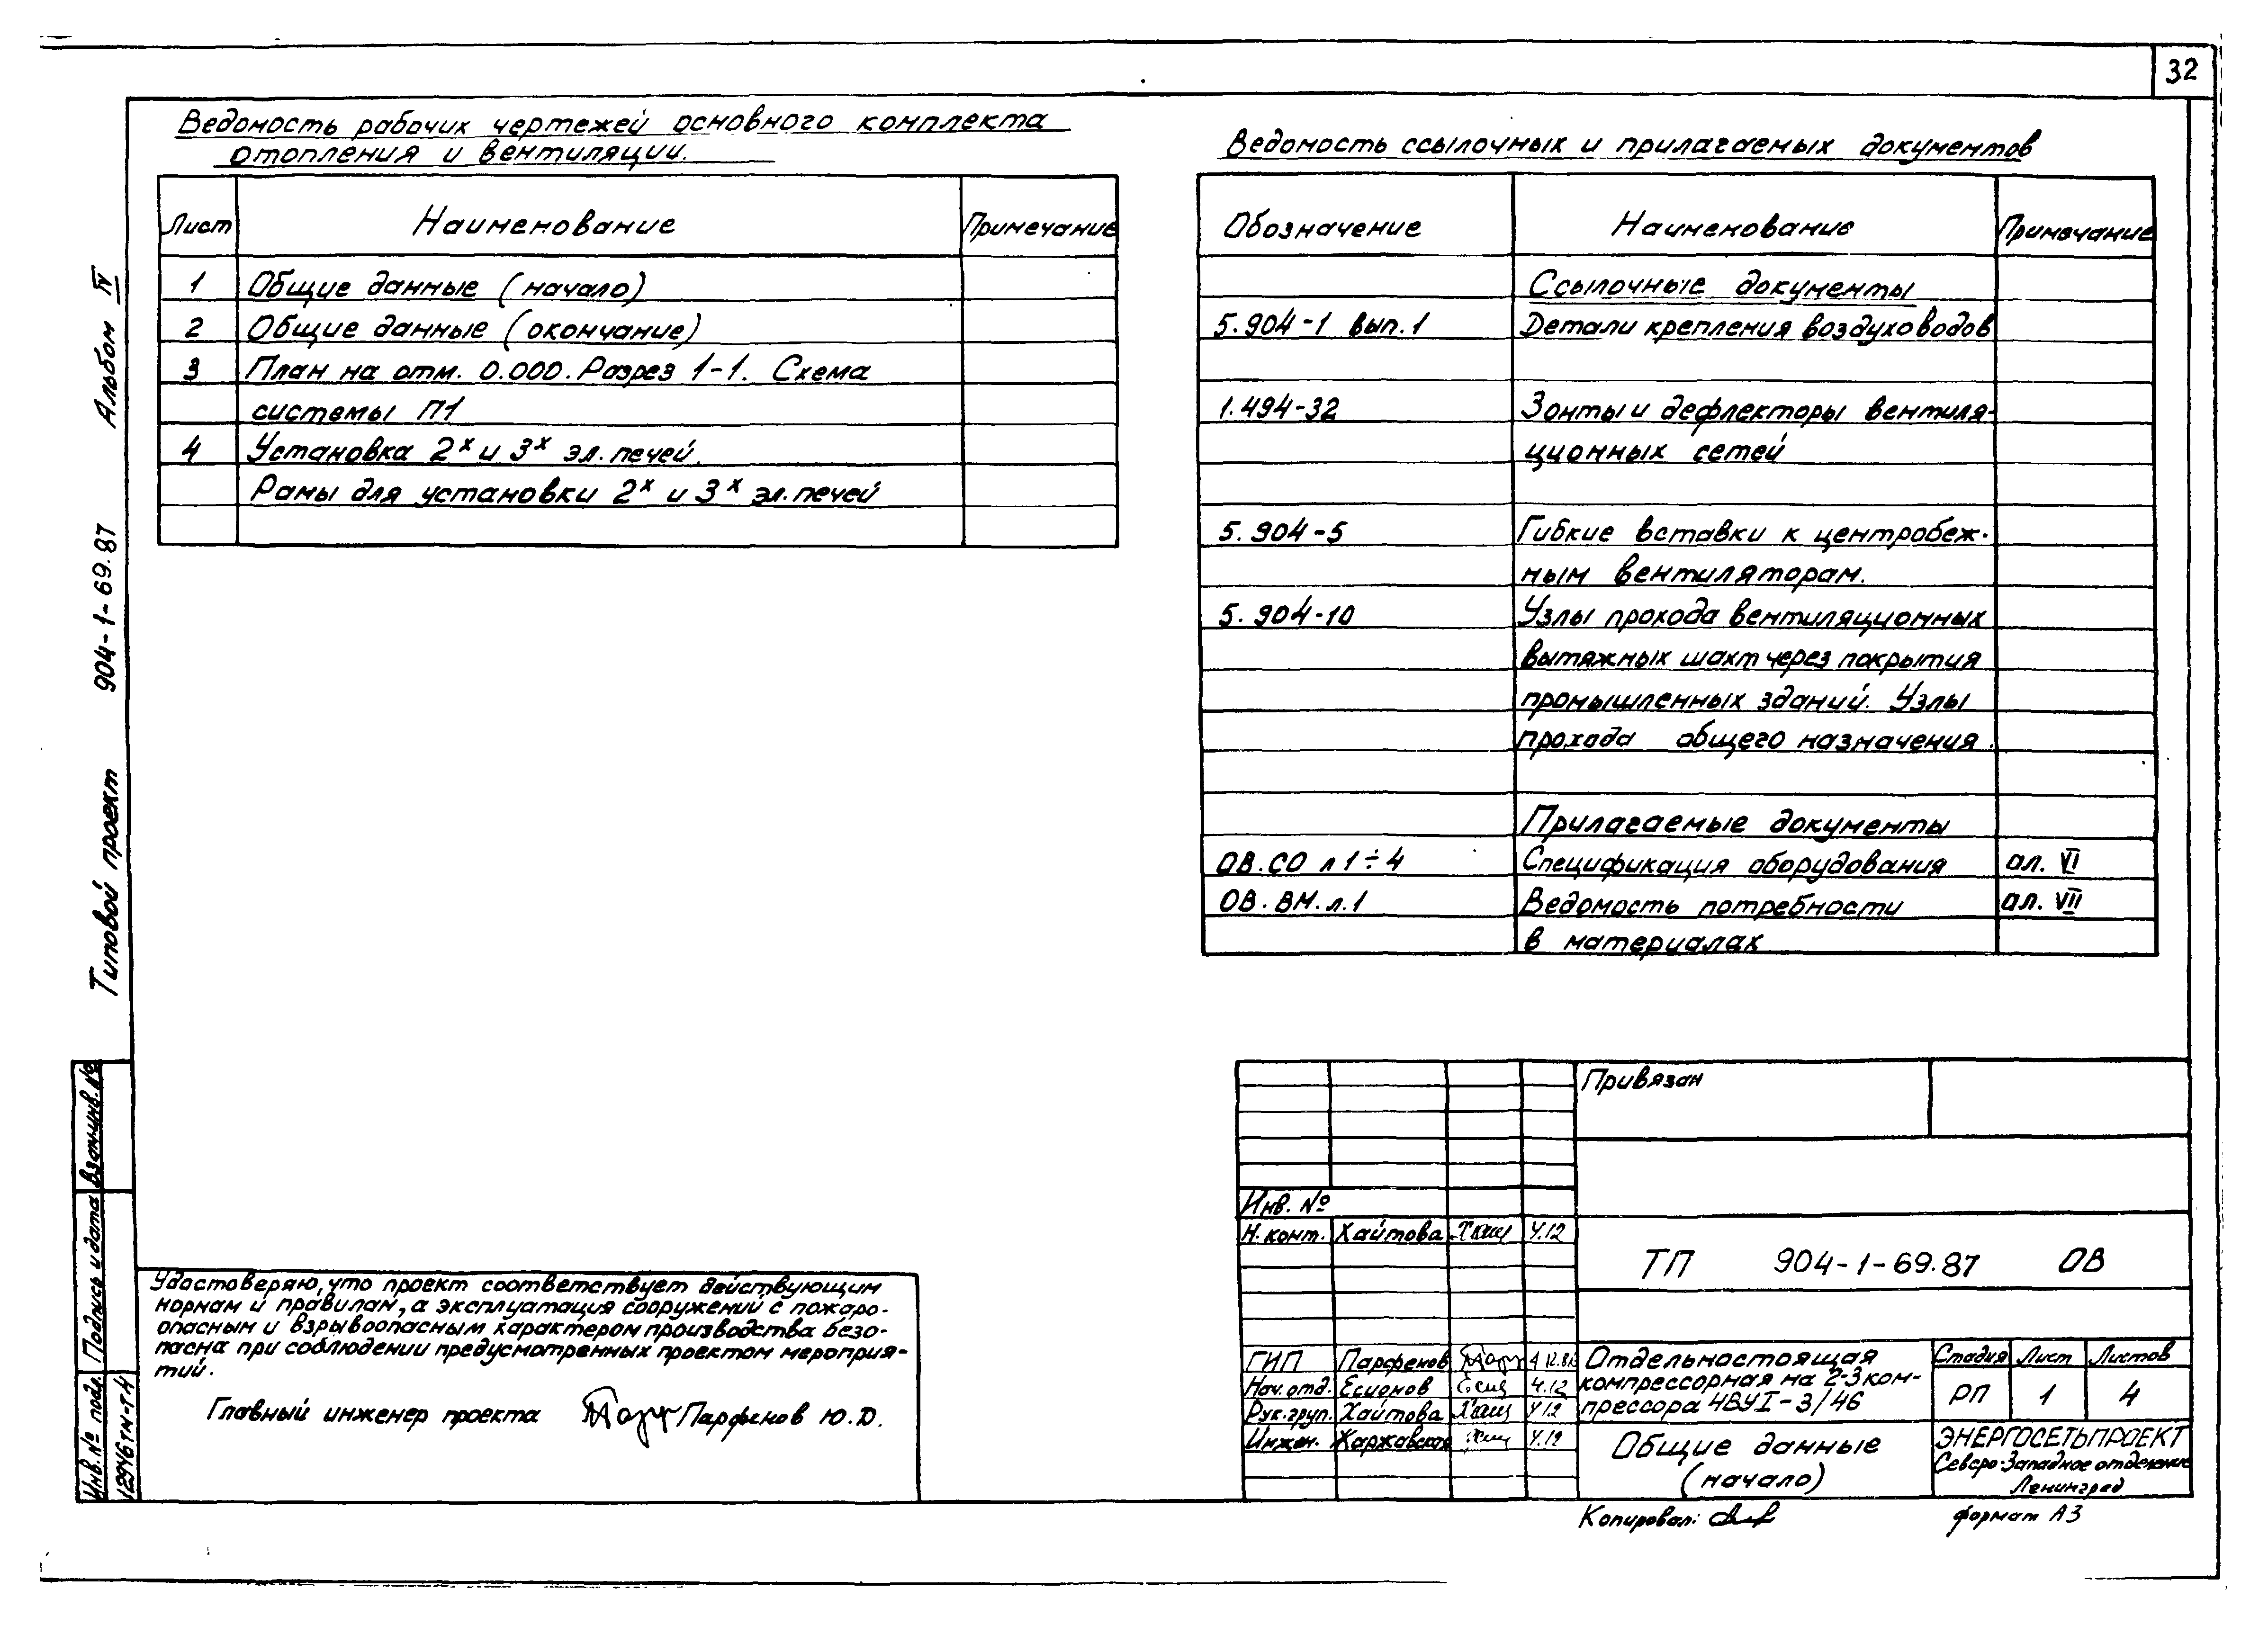 32
Ведомость рабочих чертежей основного комплекта
отопления и вентиляции.
Лист Наименование Примечание
1 Общие данные (начало)
2 Общие данные (окончание)
3 План на отм. 0.000. Разрез 1-1. Схема
системы П1
4 Установка 2х и 3х эл. печей.
Рамы для установки 2х и 3х эл. печей
Ведомость ссылочных и прилагаемых документов
Обозначение Наименование Примечание
Ссылочные документы
5.904-1 вып. 1 Детали крепления воздуховодов
1.494-32 Зонты и дефлекторы вентиля-
ционных сетей
5.904-5 Гибкие вставки к центробеж-
ным вентиляторам.
5.904-10 Узлы прохода вентиляционных
вытяжных шахт через покрытия
промышленных зданий. Узлы
прохода общего назначения.
Прилагаемые документы
ОВ.СО л 1÷4 Спецификация оборудования ал. VI
ОВ.ВМ.л.1 Ведомость потребности ал. VII
в материалах
Типовой проект 904-1-69.87 Альбом IV
Инв. № подл. Подпись и дата Взам.инв. №
12946тм-т4
Удостоверяю, что проект соответствует действующим
нормам и правилам, а эксплуатация сооружений с пожаро-
опасным и взрывоопасным характером производства безо-
пасна при соблюдении предусмотренных проектом мероприя-
тий.
Главный инженер проекта Парфенов Ю.Д.
Привязан
Инв. №
Н. конт. Хаитова 4.12
ТП 904-1-69.87 ОВ
ГИП Парфенов 4.12.86
Нач. отд. Есионов 4.12
Рук. груп. Хаитова 4.12
Инжен. Каржавская 4.12
Отдельностоящая
компрессорная на 2-3 ком-
прессора 4ВУ1-3/46
Стадия Лист Листов
РП 1 4
Общие данные
(начало)
ЭНЕРГОСЕТЬПРОЕКТ
Северо-Западное отделение
Ленинград
Копировал:
формат А3